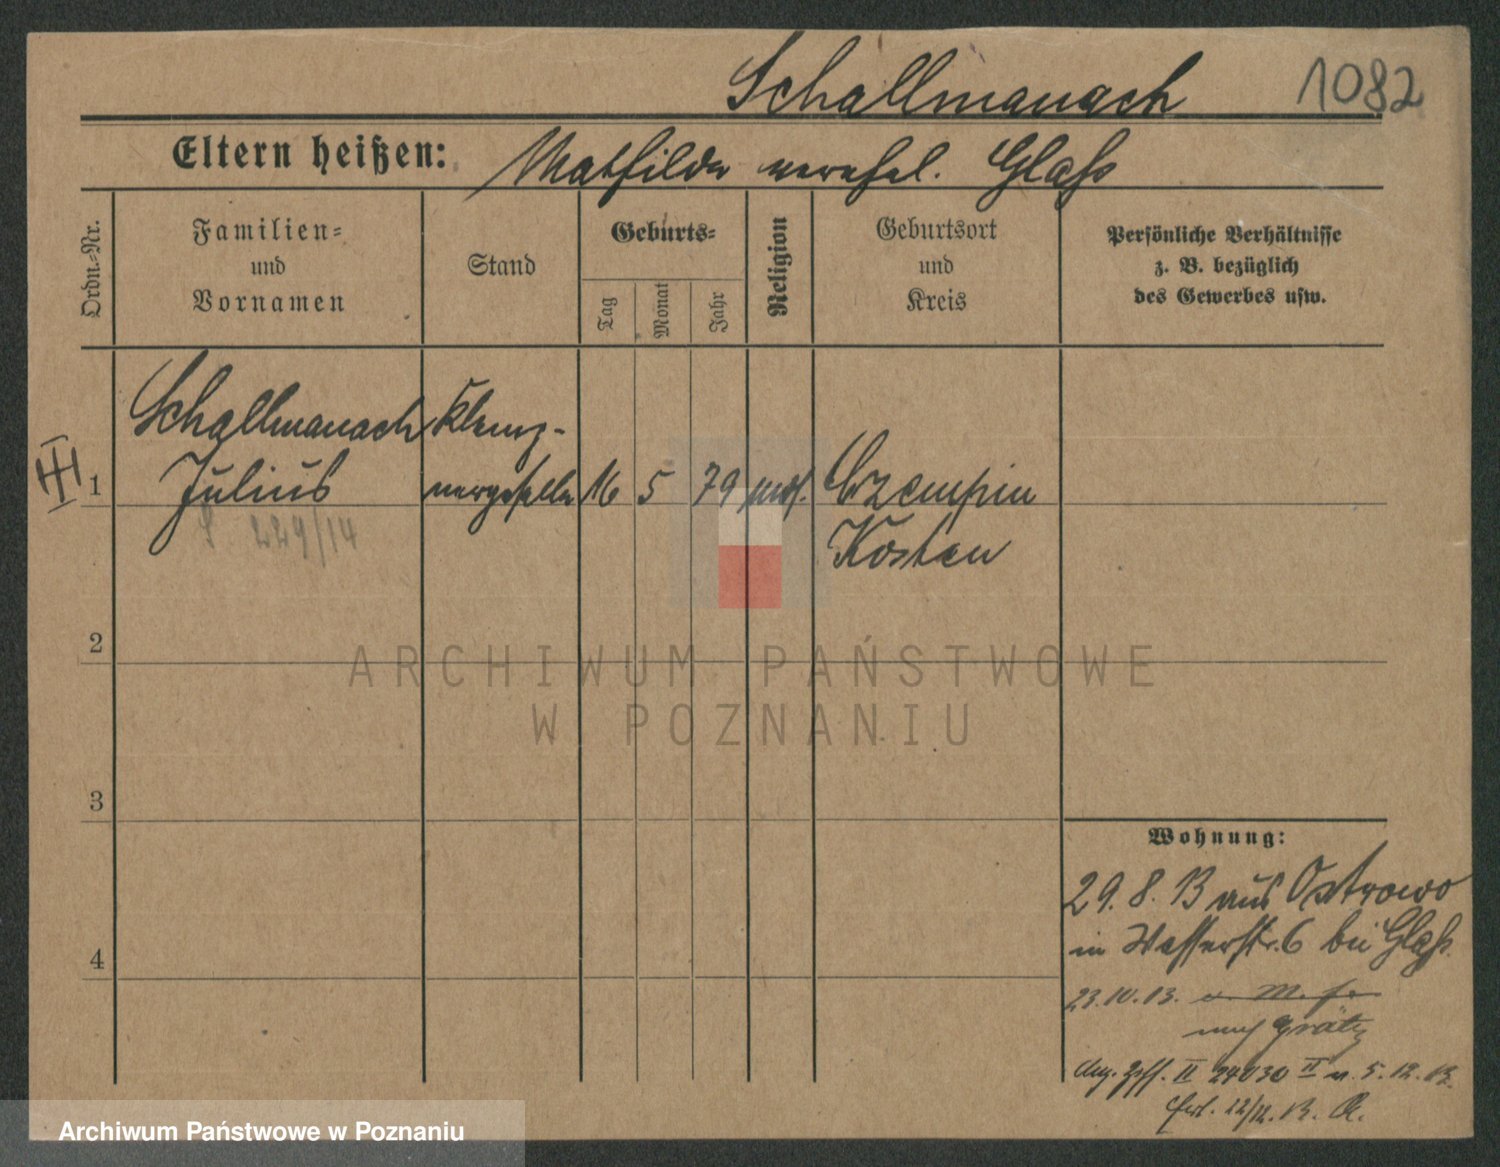 Schallmanach 1082
Eltern heißen: Mathilde verehel. Glaß
Ordn.-Nr.
Familien-
und
Vornamen
Stand
Geburts-
Tag
Monat
Jahr
Religion
Geburtsort
und
Kreis
Persönliche Verhältnisse
z. B. bezüglich
des Gewerbes usw.
Schallmanach Klemp-
III 1 Julius nergeselle 16 5 79 Czempin
S. 229/14
Kosten
2
ARCHIWUM PAŃSTWOWE
W POZNANIU
3
Wohnung:
29. 8. 13 aus Ostrowo
4 in Wasserstr. 6 bei Glaß.
23.10.13.
nach Grätz
II 24030 II v. 5.12.13.
22/12. 13.
Archiwum Państwowe w Poznaniu